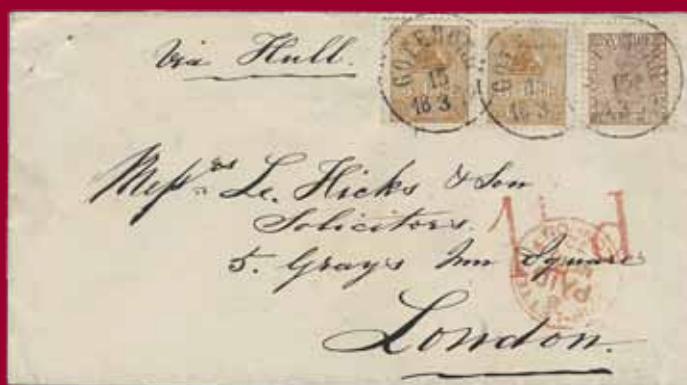 via Hull.
GÖTEBORG
15
18 3
Mess.rs Le. Hicks & Son
Solicitors.
5. Grays Inn Square
1d
PAID
London.